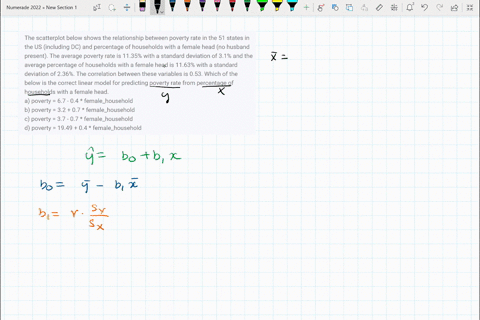 Numerade 2022 > New Section 1
The scatterplot below shows the relationship between poverty rate in the 51 states in
the US (including DC) and percentage of households with a female head (no husband
present). The average poverty rate is 11.35% with a standard deviation of 3.1% and the
average percentage of households with a female head is 11.63% with a standard
deviation of 2.36%. The correlation between these variables is 0.53. Which of the
below is the correct linear model for predicting poverty rate from percentage of
households with a female head.
y x
a) poverty = 6.7 - 0.4 * female_household
b) poverty = 3.2 + 0.7 * female_household
c) poverty = 3.7 - 0.7 * female_household
d) poverty = 19.49 + 0.4 * female_household
x̄ =
ŷ = b₀ + b₁ x
b₀ = ȳ - b₁ x̄
b₁ = r · Sᵧ/Sₓ